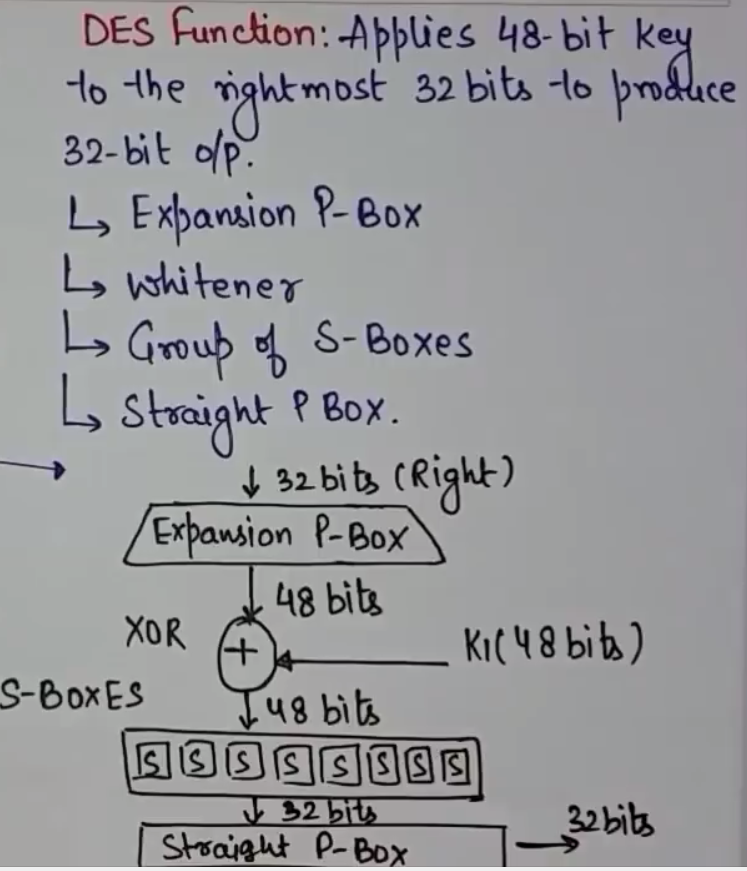 DES Function: Applies 48-bit key
to the rightmost 32 bits to produce
32-bit o/p.
↳ Expansion P-Box
↳ whitener
↳ Group of S-Boxes
↳ Straight P Box.
↓ 32 bits (Right)
Expansion P-Box
48 bits
XOR
+
K1(48 bits)
S-BOXES
48 bits
S S S S S S S S
32 bits
32 bits
Straight P-Box